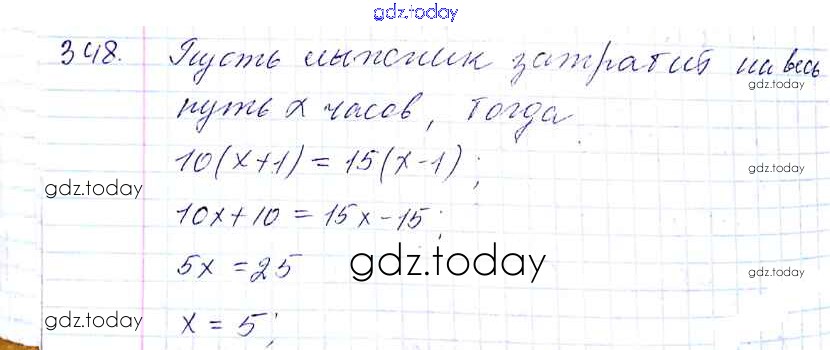 gdz.today
348. Пусть лыжник затратил на весь
gdz.today
путь x часов, тогда
10(x+1) = 15(x-1);
gdz.today
gdz.today
10x+10 = 15x-15;
5x = 25
gdz.today
gdz.today
x = 5;
gdz.today
gdz.today